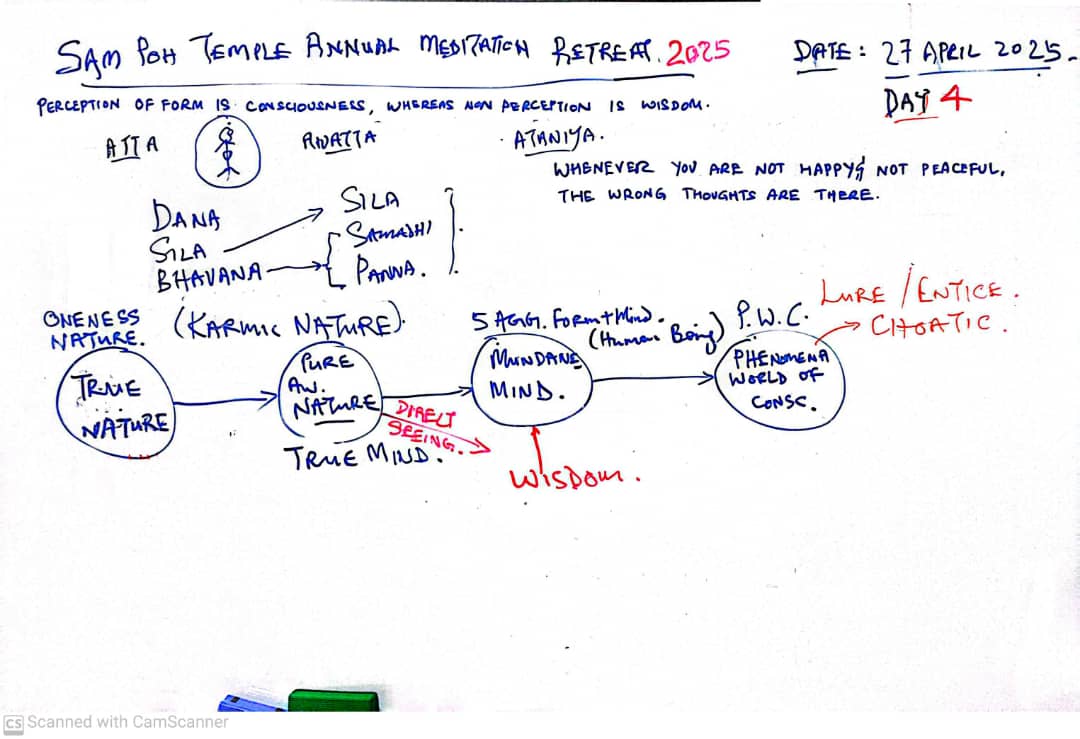 SAM POH TEMPLE ANNUAL MEDITATION RETREAT. 2025
DATE: 27 APRIL 2025.
DAY 4
PERCEPTION OF FORM IS CONSCIOUSNESS, WHEREAS NON PERCEPTION IS WISDOM.
ATTA
ANATTA
ATANIYA.
WHENEVER YOU ARE NOT HAPPY & NOT PEACEFUL,
THE WRONG THOUGHTS ARE THERE.
DANA
SILA
BHAVANA
SILA
SAMADHI
PANNA.
ONENESS
NATURE.
(KARMIC NATURE).
5 AGG. FORM + Mind.
(Human Being)
P.W.C.
LURE / ENTICE.
CHOATIC.
TRUE
NATURE
PURE
AW.
NATURE
TRUE MIND.
DIRECT
SEEING.
MUNDANE
MIND.
WISDOM.
PHENOMENA
WORLD OF
CONSC.
CS Scanned with CamScanner